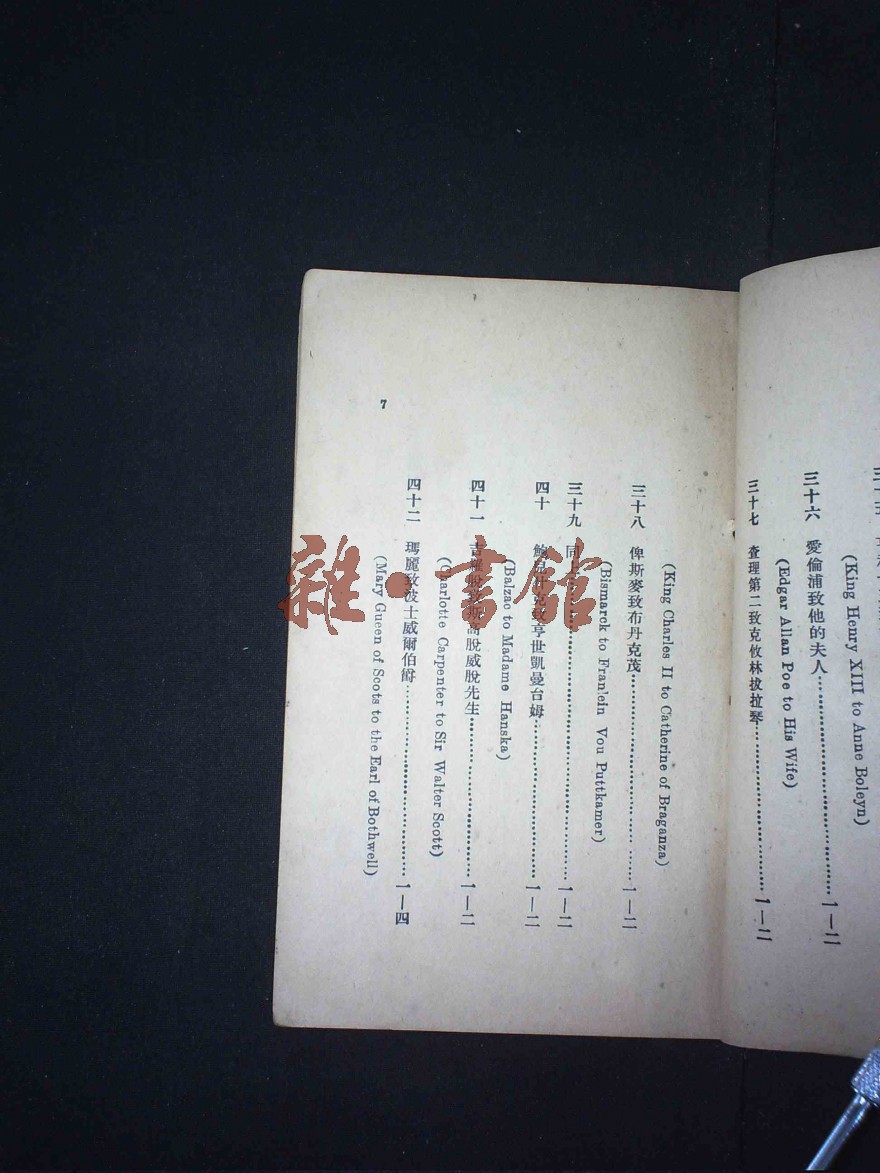 (King Henry XIII to Anne Boleyn)
三十六 愛倫浦致他的夫人……1—二
(Edgar Allan Poe to His Wife)
三十七 查理第二致克攸林拔拉琴……1—二
(King Charles II to Catherine of Braganza)
三十八 俾斯麥致布丹克茂……1—二
(Bismarck to Franlein Vou Puttkamer)
三十九 同……1—二
四十 亨世凱曼台姆……1—二
(Balzac to Madame Hanska)
四十一 脫威脫先生……1—二
(Charlotte Carpenter to Sir Walter Scott)
四十二 瑪麗致波士威爾伯爵……1—四
(Mary Gueen of Scots to the Earl of Bothwell)
7
雜·書館